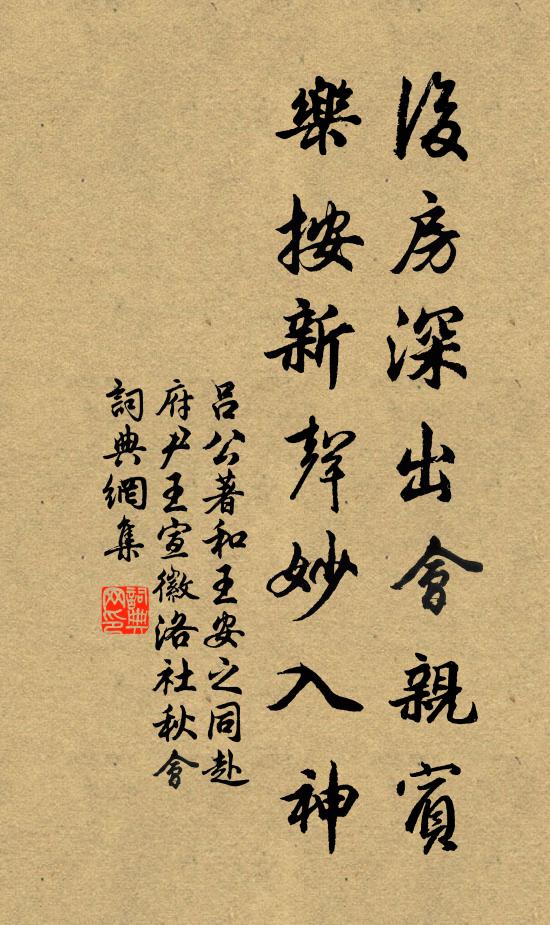 後房深出會親賓
樂按新聲妙入神
呂公著和王安之同赴
府尹王宣徽洛社秋會
詞典網集
詞典網印